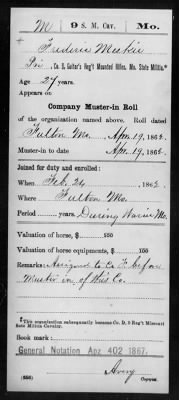 M | 9 S. M. Cav. | Mo.
Frederic
Pri, Co. D, Guitar's Reg't Mounted Rifles, Mo. State Militia.*
Age 27 years.
Appears on
Company Muster-in Roll
of the organization named above. Roll dated
Fulton Mo. Apr. 19, 1862.
Muster-in to date Apr. 19, 1862.
Joined for duty and enrolled:
When Feb. 24, 1862.
Where Fulton Mo.
Period years. During War in Mo.
Valuation of horse, $ 100
Valuation of horse equipments, $ 100
Remarks: Assigned to Co. F. before
Muster in of this Co.
*This organization subsequently became Co. D, 9 Reg't Missouri
State Militia Cavalry.
Book mark:
General Notation Apr 402 1867.
Avery
(356) Copyist.